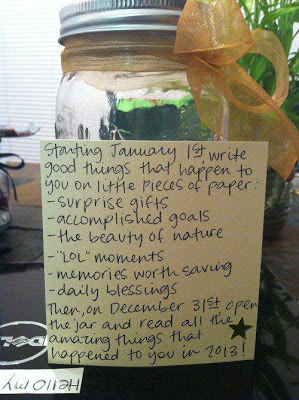 Starting January 1st write
good things that happen to
you on little pieces of paper:
- surprise gifts
- accomplished goals
- the beauty of nature
- "LOL" moments
- memories worth saving
- daily blessings
Then, on December 31st open
the jar and read all the
amazing things that
happened to you in 2013!
DELL
HELLO my